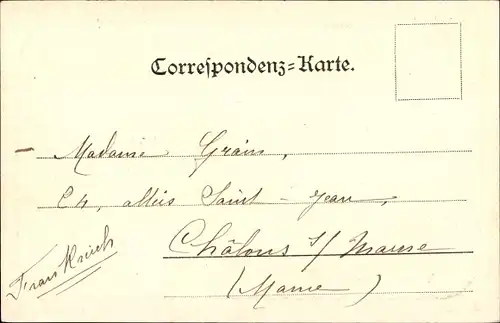 Correspondenz=Karte.
Madame Grain,
24, allées Saint-Jean,
Châlons s/ Marne
(Marne)
Frankreich